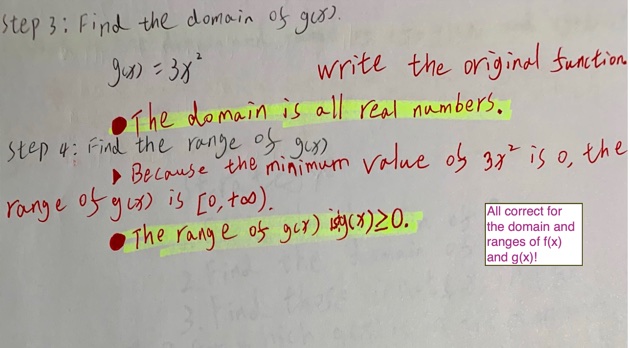 Step 3: Find the domain of g(x).
g(x) = 3x²
write the original function.
● The domain is all real numbers.
Step 4: Find the range of g(x)
▶ Because the minimum value of 3x² is 0, the
range of g(x) is [0, +∞).
● The range of g(x) is g(x) ≥ 0.
All correct for
the domain and
ranges of f(x)
and g(x)!